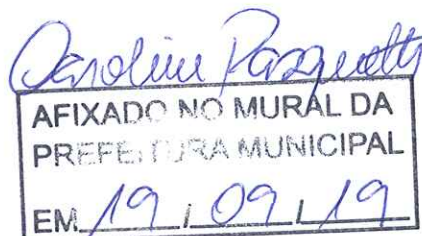 Caroline Pasquetti
AFIXADO NO MURAL DA
PREFEITURA MUNICIPAL
EM 19 / 09 / 19